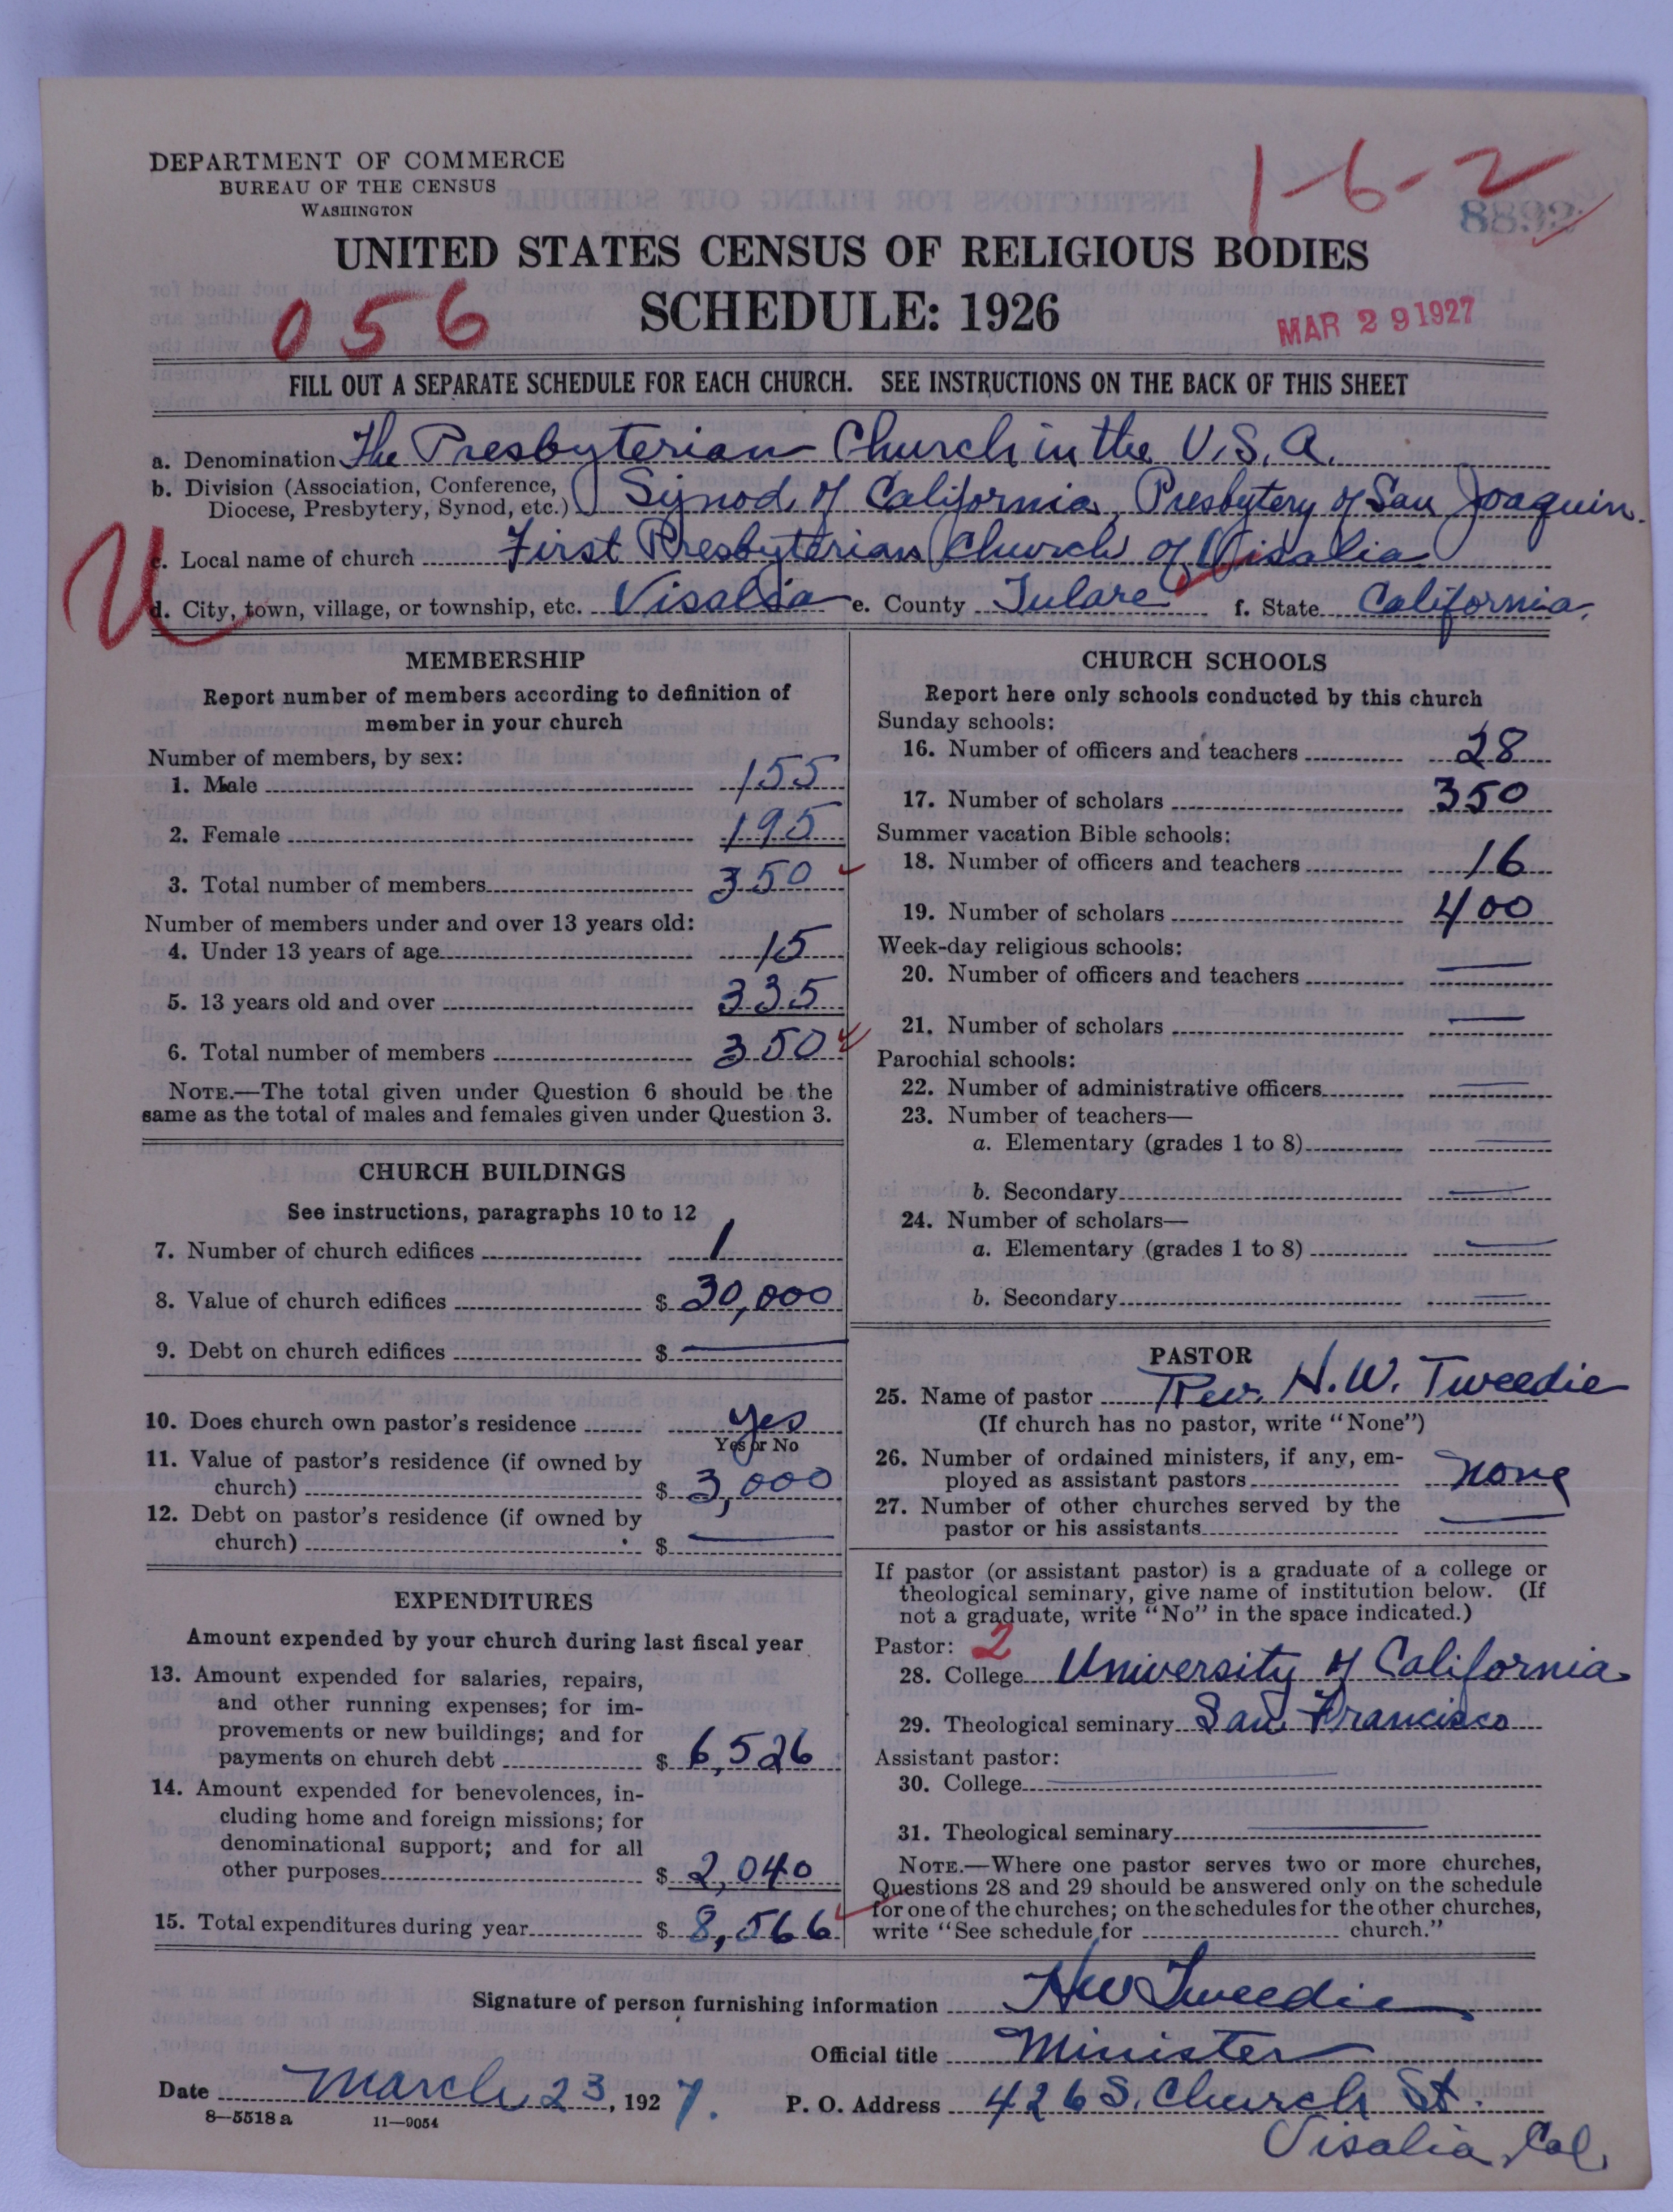 DEPARTMENT OF COMMERCE
BUREAU OF THE CENSUS
WASHINGTON
1-6-2
8892
UNITED STATES CENSUS OF RELIGIOUS BODIES
056
SCHEDULE: 1926
MAR 29 1927
FILL OUT A SEPARATE SCHEDULE FOR EACH CHURCH. SEE INSTRUCTIONS ON THE BACK OF THIS SHEET
a. Denomination The Presbyterian Church in the U.S.A.
b. Division (Association, Conference, Diocese, Presbytery, Synod, etc.) Synod of California, Presbytery of San Joaquin.
c. Local name of church First Presbyterian Church of Visalia
d. City, town, village, or township, etc. Visalia e. County Tulare f. State California.
U
MEMBERSHIP
Report number of members according to definition of
member in your church
Number of members, by sex:
1. Male 155
2. Female 195
3. Total number of members 350
Number of members under and over 13 years old:
4. Under 13 years of age 15
5. 13 years old and over 335
6. Total number of members 350
NOTE.—The total given under Question 6 should be the
same as the total of males and females given under Question 3.
CHURCH BUILDINGS
See instructions, paragraphs 10 to 12
7. Number of church edifices 1
8. Value of church edifices $ 30,000
9. Debt on church edifices $ —
10. Does church own pastor's residence yes
Yes or No
11. Value of pastor's residence (if owned by
church) $ 3,000
12. Debt on pastor's residence (if owned by
church) $ —
EXPENDITURES
Amount expended by your church during last fiscal year
13. Amount expended for salaries, repairs,
and other running expenses; for im-
provements or new buildings; and for
payments on church debt $ 6,526
14. Amount expended for benevolences, in-
cluding home and foreign missions; for
denominational support; and for all
other purposes $ 2,040
15. Total expenditures during year $ 8,566
CHURCH SCHOOLS
Report here only schools conducted by this church
Sunday schools:
16. Number of officers and teachers 28
17. Number of scholars 350
Summer vacation Bible schools:
18. Number of officers and teachers 16
19. Number of scholars 400
Week-day religious schools:
20. Number of officers and teachers —
21. Number of scholars —
Parochial schools:
22. Number of administrative officers —
23. Number of teachers—
a. Elementary (grades 1 to 8) —
b. Secondary —
24. Number of scholars—
a. Elementary (grades 1 to 8) —
b. Secondary —
PASTOR
25. Name of pastor Rev. H. W. Tweedie
(If church has no pastor, write "None")
26. Number of ordained ministers, if any, em-
ployed as assistant pastors none
27. Number of other churches served by the
pastor or his assistants —
If pastor (or assistant pastor) is a graduate of a college or
theological seminary, give name of institution below. (If
not a graduate, write "No" in the space indicated.)
Pastor: 2
28. College University of California
29. Theological seminary San Francisco
Assistant pastor:
30. College —
31. Theological seminary —
NOTE.—Where one pastor serves two or more churches,
Questions 28 and 29 should be answered only on the schedule
for one of the churches; on the schedules for the other churches,
write "See schedule for church."
Signature of person furnishing information HW Tweedie
Official title Minister
Date March 23, 1927. P. O. Address 426 S. Church St.
8—5518 a 11—9054
Visalia, Cal.